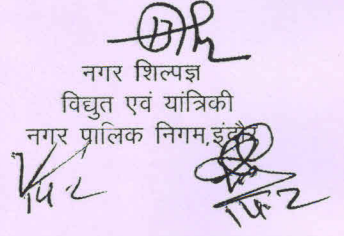 नगर शिल्पज्ञ
विद्युत एवं यांत्रिकी
नगर पालिक निगम,इंदौर
14-2
14-2